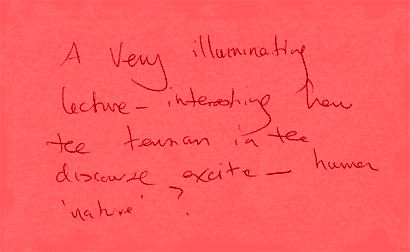 A very illuminating
lecture – interesting how
the tension in the
discourse excite – human
'nature'?